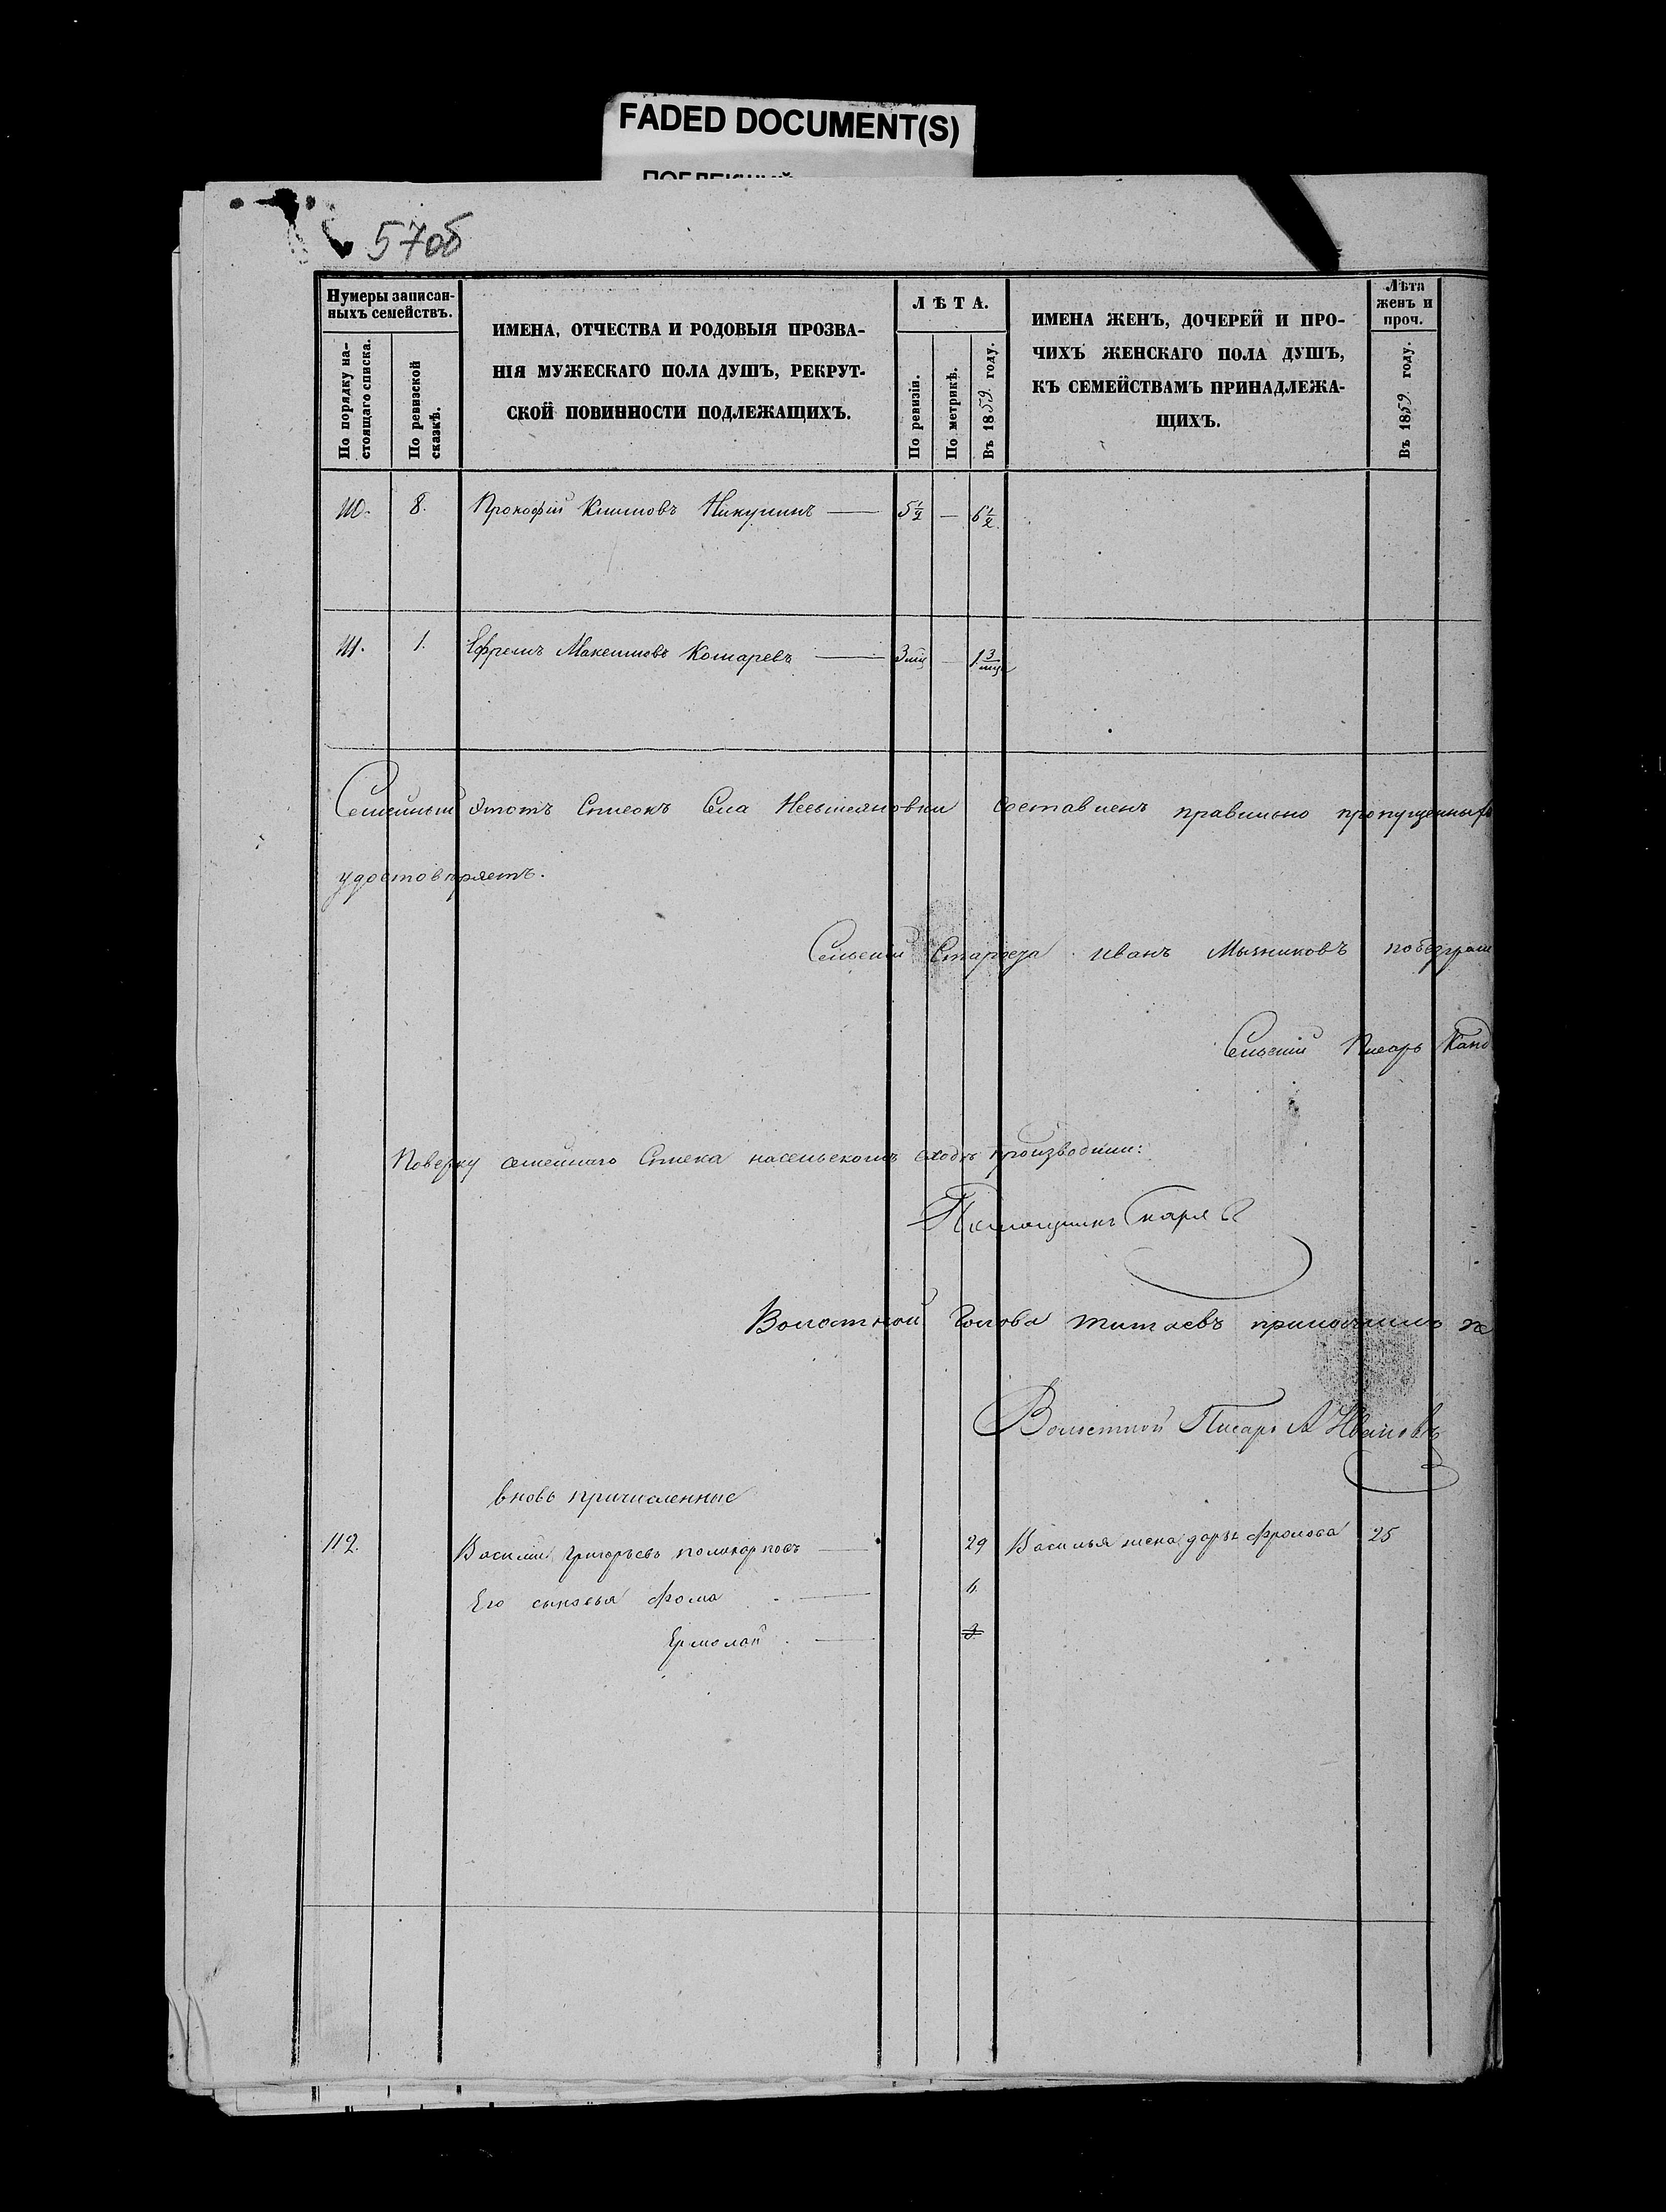 FADED DOCUMENT(S)
57об
Нумеры записан-
ныхъ семействъ.
По порядку на-
стоящаго списка.
По ревизской
сказкѣ.
ИМЕНА, ОТЧЕСТВА И РОДОВЫЯ ПРОЗВА-
НІЯ МУЖЕСКАГО ПОЛА ДУШЪ, РЕКРУТ-
СКОЙ ПОВИННОСТИ ПОДЛЕЖАЩИХЪ.
ЛѢТА.
По ревизіи.
По метрикѣ.
Въ 1859 году.
ИМЕНА ЖЕНЪ, ДОЧЕРЕЙ И ПРО-
ЧИХЪ ЖЕНСКАГО ПОЛА ДУШЪ,
КЪ СЕМЕЙСТВАМЪ ПРИНАДЛЕЖА-
ЩИХЪ.
Лѣта
женъ и
проч.
Въ 1859 году.
110. 8. Прокофій Климовъ Никулинъ — 5½ — 6½
111. 1. Ефремъ Максимовъ Комаревъ — 3 мц — 1 3/мца
Семейный Этотъ Списокъ Села составленъ правильно пропущенныхъ
удостовѣряетъ.
Сельскій Староста Иванъ Мычниковъ
Сельскій Писарь
Поверку семейнаго Списка насельскомъ сходѣ производили:
Волостной Голова Титаевъ приложилъ
Волостной Писарь А Ивановъ
вновь причисленные
112. Василий Григорьевъ полкарповъ — 29 Василья жена дарья Фролова 25
Его сыновья Фома — 4
Ермолай — 3